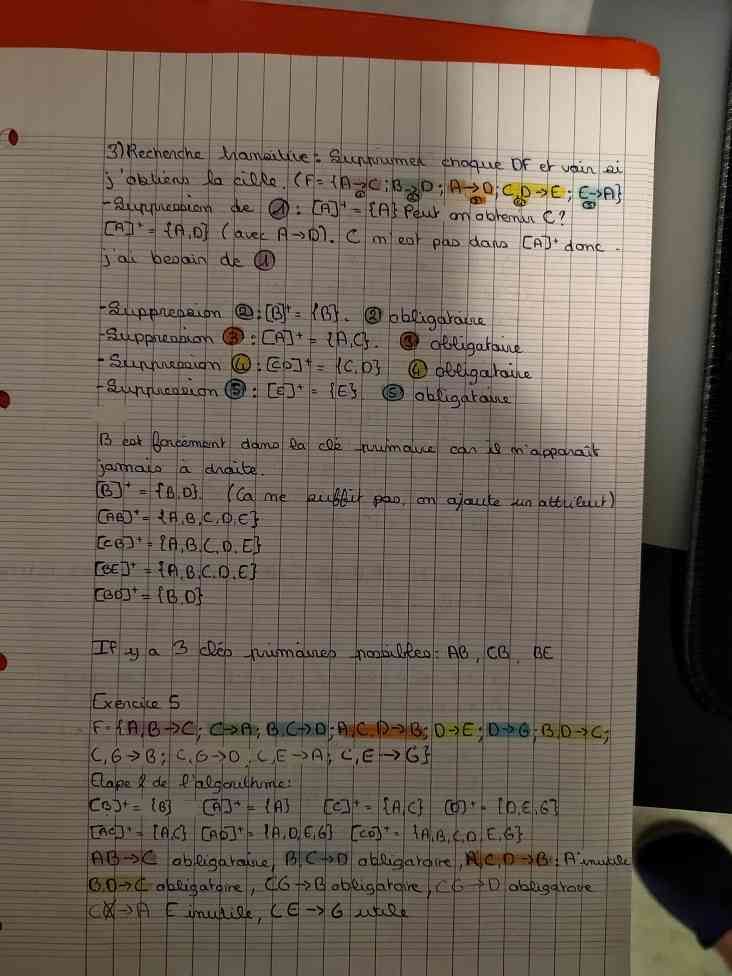 3) Recherche transitive : Supprimer chaque DF et voir si
j'obtiens la cible. (F = {A→C ; B→D ; A→D ; C,D→E ; E→A}
① ② ③ ④ ⑤
- Suppression de ① : [A]⁺ = {A} Peut on obtenir C ?
[A]⁺ = {A,D} (avec A→D). C n'est pas dans [A]⁺ donc
j'ai besoin de ①
- Suppression ② : [B]⁺ = {B}. ② obligatoire
- Suppression ③ : [A]⁺ = {A,C}. ③ obligatoire
- Suppression ④ : [CD]⁺ = {C,D} ④ obligatoire
- Suppression ⑤ : [E]⁺ = {E} ⑤ obligatoire
B est forcément dans la clé primaire car il n'apparaît
jamais à droite.
[B]⁺ = {B,D}. (Ca me suffit pas, on ajoute un attribut)
[AB]⁺ = {A,B,C,D,E}
[CB]⁺ = {A,B,C,D,E}
[BE]⁺ = {A,B,C,D,E}
[BD]⁺ = {B,D}
Il y a 3 clés primaires possibles : AB, CB, BE
Exercice 5
F = {A,B→C ; C→A ; B,C→D ; A,C,D→B ; D→E ; D→G ; B,D→C ;
C,G→B ; C,G→D, C,E→A ; C,E→G}
Etape 2 de l'algorithme :
[B]⁺ = {B} [A]⁺ = {A} [C]⁺ = {A,C} [D]⁺ = {D,E,G}
[AC]⁺ = {A,C} [AD]⁺ = {A,D,E,G} [CD]⁺ = {A,B,C,D,E,G}
AB→C obligatoire, B,C→D obligatoire, A,C,D→B : A inutile
B,D→C obligatoire, CG→B obligatoire, CG→D obligatoire
CE→A E inutile, CE→G utile